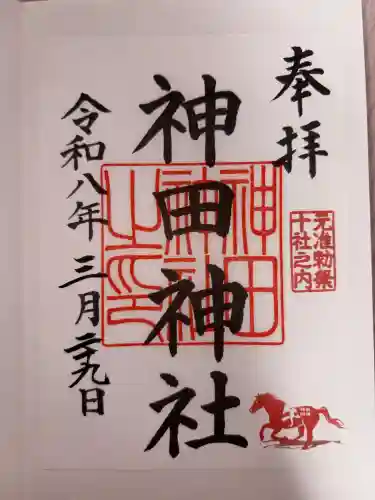 奉拝
元准勅祭
十社之内
神田神社
神田
神社
之印
令和八年 三月二十九日